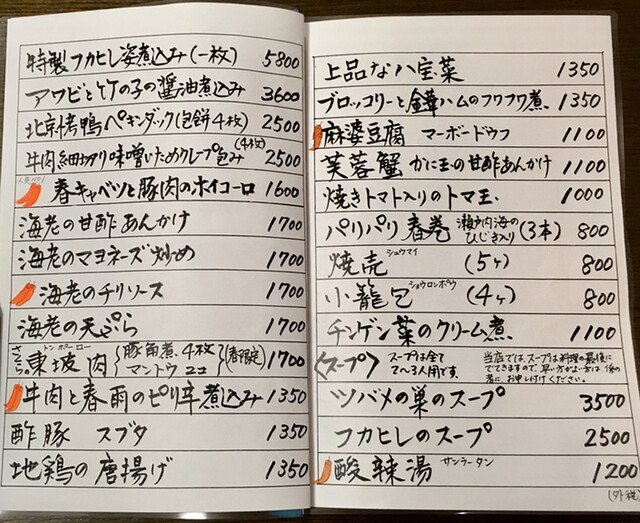 特製フカヒレ姿煮込み(一枚) 5800
アワビと竹の子の醤油煮込み 3600
北京烤鴨ペキンダック(包餅4枚) 2500
牛肉細切り味噌いためクレープ包み(4枚) 2500
人気No1
春キャベツと豚肉のホイコーロ 1600
海老の甘酢あんかけ 1700
海老のマヨネーズ炒め 1700
海老のチリソース 1700
海老の天ぷら 1700
さくら 東坡肉 トンポーロー {豚角煮.4枚 マントウ2コ} (春限定) 1700
牛肉と春雨のピリ辛煮込み 1350
酢豚 スブタ 1350
地鶏の唐揚げ 1350
上品な八宝菜 1350
ブロッコリーと金華ハムのフワフワ煮. 1350
麻婆豆腐 マーボードウフ 1100
芙蓉蟹 かに玉の甘酢あんかけ 1100
焼きトマト入りのトマ玉. 1000
パリパリ春巻 瀬戸内海のひじき入り (3本) 800
焼売 シュウマイ (5ヶ) 800
小籠包 ショウロンポウ (4ヶ) 800
チンゲン菜のクリーム煮. 1100
〈スープ〉 スープは全て2〜3人用です.
当店では、スープは料理の最後にでてきますので、早い方がよい方は係の者に、お申し付けください。
ツバメの巣のスープ 3500
フカヒレのスープ 2500
酸辣湯 サンラータン 1200
(外税)